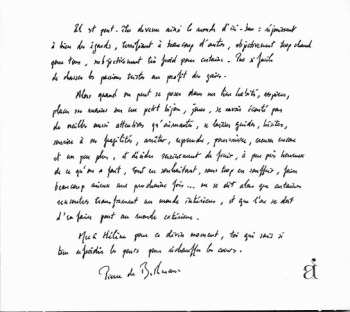 Il est peut-être devenu ainsi le monde d'ici-bas : réjouissant
à bien des égards, terrifiant à beaucoup d'autres, objectivement trop chaud
pour tous, subjectivement trop froid pour certains. Pas si facile
de chasser les passions tristes au profit des gaies.
Alors quand on peut se poser dans un lieu habité, respirer,
placer ses mains sur un petit bijou, jouer, se savoir écouté par
des oreilles aussi attentives qu'aimantes, se laisser guider, hésiter,
sourire à ses fragilités, arrêter, reprendre, poursuivre, encore
et un peu plus, et décider sereinement de finir, à peu près heureux
de ce qu'on a fait, tout en souhaitant, sans trop en souffrir, faire
beaucoup mieux une prochaine fois... on se dit alors que certaines
rencontres transforment un monde intérieur, et que l'on se doit
d'en faire part au monde extérieur.
Merci Hélène pour ce divin moment, toi qui sais si
bien refroidir les peurs pour réchauffer les cœurs.
Pierre de